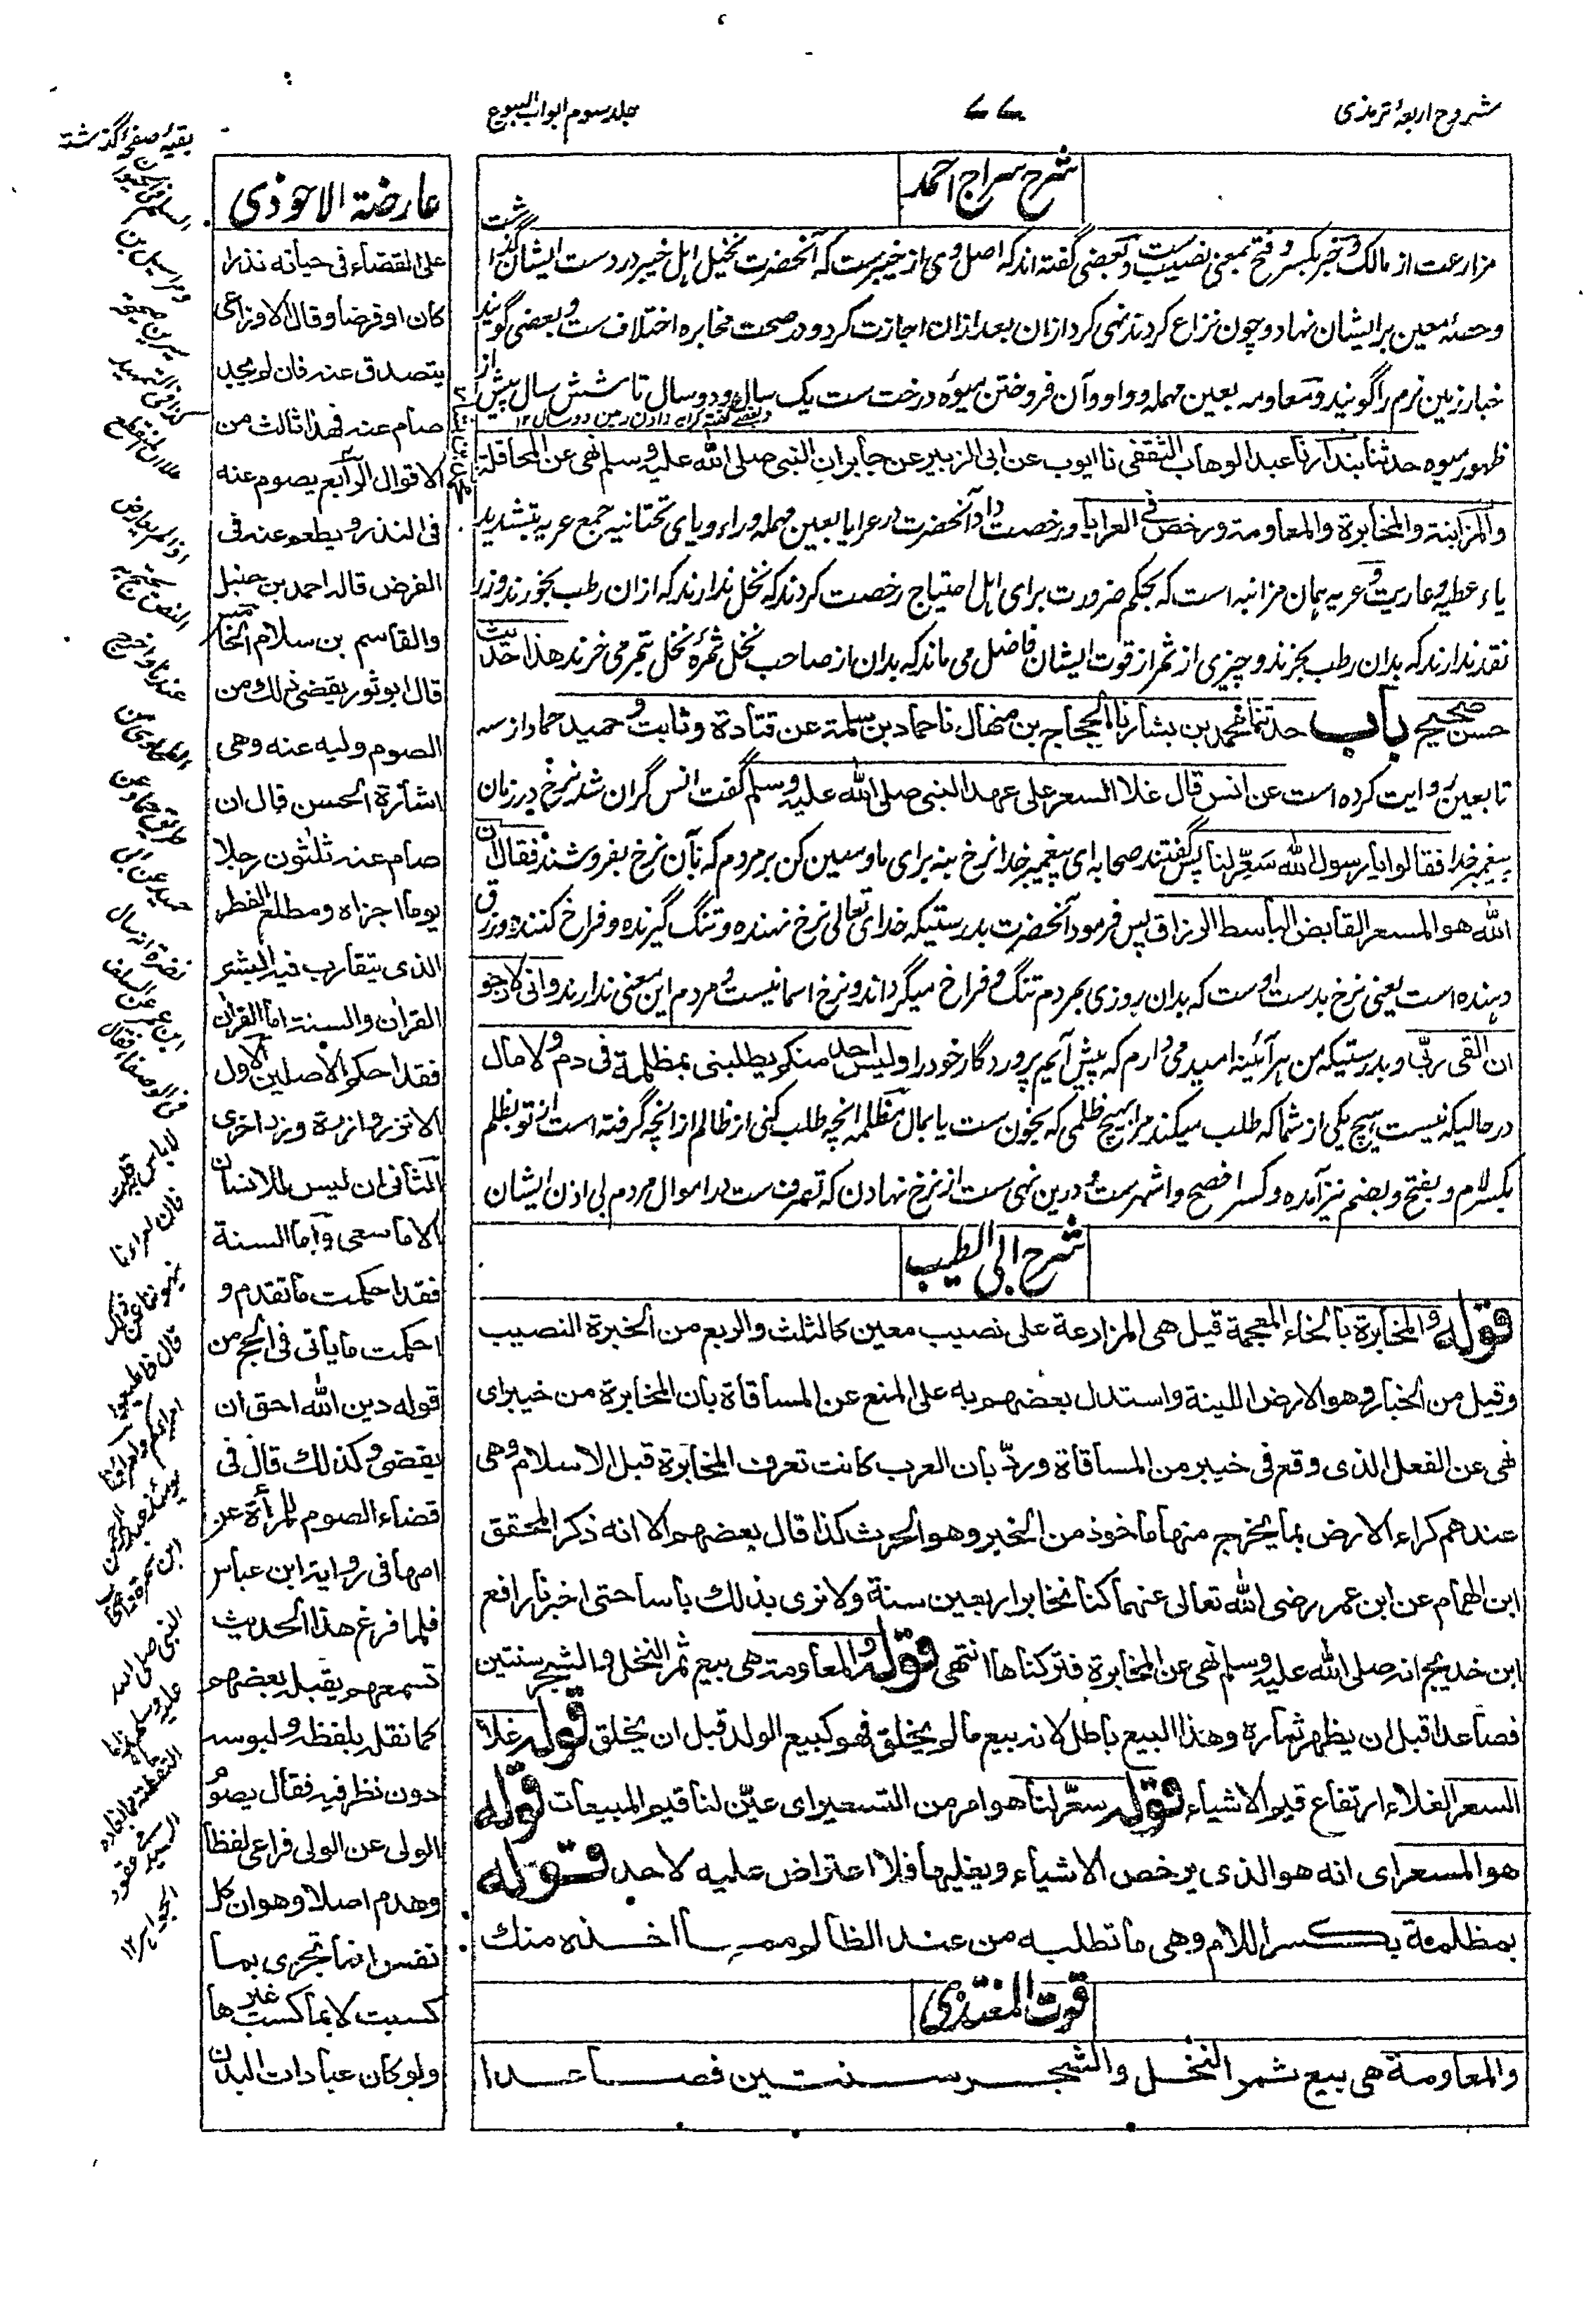 شروح اربعهٔ ترمذی
۷۷
جلد سوم ابواب البیوع
شرح سراج احمد
مزارعت از مالک و خبر بکسر و فتح بمعنی نصیب ست و بعضی گفته اند که اصل وی از خیبرست که آنحضرت نخیل اهل خیبر در دست ایشان گذاشت
و حصهٔ معین بر ایشان نهاد و چون نزاع کردند نهی کرد ازان بعد ازان اجازت کرد و در صحت مخابره اختلاف ست و بعضی گویند
خبار زمین نرم را گویند و معاومه بعین مهمله و واو و آن فروختن میوهٔ درخت ست یک سال و دو سال تا شش سال پیش از
و بعضی گفته کرایه دادن زمین دو سال ۱۲
ظهور میوه حدثنا بندار نا عبد الوهاب الثقفی نا ایوب عن ابی الزبیر عن جابر ان النبی صلی الله علیه وسلم نهی عن المحاقلة
والمزابنة والمخابرة والمعاومة ورخص فی العرایا و رخصت داد آنحضرت در عرایا بعین مهمله و راء و یای تحتانیه جمع عریه بتشدید
یاء عطیه و عاریت و عریه همان مزابنه است که بحکم ضرورت برای اهل احتیاج رخصت کردند که نخل ندارند که ازان رطب بخورند و زر
نقد ندارند که بدان رطب بخرند و چیزی از ثمر از قوت ایشان فاضل می ماند که بدان از صاحب نخل ثمرهٔ نخل بتمر می خرند هذا حدیث
حسن صحیح باب حدثنا محمد بن بشار نا الحجاج بن منهال نا حماد بن سلمة عن قتادة و ثابت و حمید حماد از سه
تابعین روایت کرده است عن انس قال غلا السعر علی عهد النبی صلی الله علیه وسلم گفت انس گران شد نرخ در زمان
پیغمبر خدا فقالوا یا رسول الله سَعِّر لنا پس گفتند صحابه ای پیغمبر خدا نرخ بنه برای ما و معین کن بر مردم که بآن نرخ بفروشند فقال ان
الله هو المسعر القابض الباسط الرزاق پس فرمود آنحضرت بدرستیکه خدای تعالی نرخ نهنده و تنگ گیرنده و فراخ کننده و رزق
دهنده است یعنی نرخ بدست اوست که بدان روزی بمردم تنگ و فراخ میگرداند و نرخ اسمانیست و مردم این معنی ندارند وانی لارجو
ان القی ربّی و بدرستیکه من هر آئینه امید می دارم که پیش آیم پروردگار خود را ولیس احد منکم یطلبنی بمظلمة فی دم ولا مال
در حالیکه نیست هیچ یکی از شما که طلب میکند مرا بهیچ ظلمی که بخون ست یا بمال مظلمه انچه طلب کنی از ظالم از انچه گرفته است از تو بظلم
بکسر لام و بفتح و بضم نیز آمده و کسر افصح و اشهرست و درین نهی ست از نرخ نهادن که تصرف ست در اموال مردم بی اذن ایشان
شرح ابی الطیب
قوله والمخابرة بالخاء المعجمة قیل هی المزارعة علی نصیب معین کالثلث والربع من الخبرة النصیب
وقیل من الخبار وهو الارض اللینة واستدل بعضهم به علی المنع عن المساقاة بان المخابرة من خیبر ای
نهی عن الفعل الذی وقع فی خیبر من المساقاة وردّ بان العرب کانت تعرف المخابرة قبل الاسلام وهی
عندهم کراء الارض بما یخرج منها ماخوذ من الخبر وهو الحرث کذا قال بعضهم الا انه ذکر المحقق
ابن الهمام عن ابن عمر رضی الله تعالی عنهما کنا نخابر اربعین سنة ولا نری بذلک بأسا حتی اخبرنا رافع
ابن خدیج انه صلی الله علیه وسلم نهی عن المخابرة فترکناها انتهی قوله والمعاومة هی بیع ثمر النخل والشجر سنتین
فصاعدا قبل ان یظهر ثماره وهذا البیع باطل لانه بیع ما لم یخلق فهو کبیع الولد قبل ان یخلق قوله غلا
السعر الغلاء ارتفاع قیم الاشیاء قوله سعّر لنا هو امر من التسعیر ای عیّن لنا قیم المبیعات قوله
هو المسعر ای انه هو الذی یرخص الاشیاء ویغلیها فلا اعتراض علیه لاحد قوله
بمظلمة بکسر اللام وهی ما تطلبه من عند الظالم مما اخذه منک
قوت المغتذی
والمعاومة هی بیع ثمر النخل والشجر سنتین فصاعدا
عارضة الاحوذی
علی القضاء فی حیاته نذرا
کان او فرضا وقال الاوزاعی
یتصدق عنه فان لم یجد
صام عنه فهذا ثالث من
الاقوال الرابع یصوم عنه
فی النذر ویطعم عنه فی
الفرض قاله احمد بن حنبل
والقاسم بن سلام الخامس
قال ابو ثور یقضی ذلک من
الصوم ولیه عنه وهی
اشارة الحسن قال ان
صام عنه ثلثون رجلا
یوما اجزاه ومطلع الفطر
الذی یتقارب فیه البشر
القران والسنة اما القران
فقد احکم الاصلین الاول
الا تزر وازرة وزر اخری
الثانی ان لیس للانسان
الا ما سعی واما السنة
فقد احکمت ما تقدم و
احکمت ما یأتی فی الحج من
قوله دین الله احق ان
یقضی وکذلک قال فی
قضاء الصوم للمرأة عن
امها فی روایة ابن عباس
فلما فرغ هذا الحدیث
تسمعهم یقبل بعضهم
کما نقله بلفظه ولبوسه
دون نظر فیه فقال یصوم
الولی عن الولی فراعی لفظا
وهدم اصلا وهو ان کل
نفس انما تجزی بما
کسبت لا بما کسب غیرها
ولو کان عبادات البدن
بقیهٔ صفحهٔ گذشته
لا باس به
النبی صلی الله
علیه وسلم